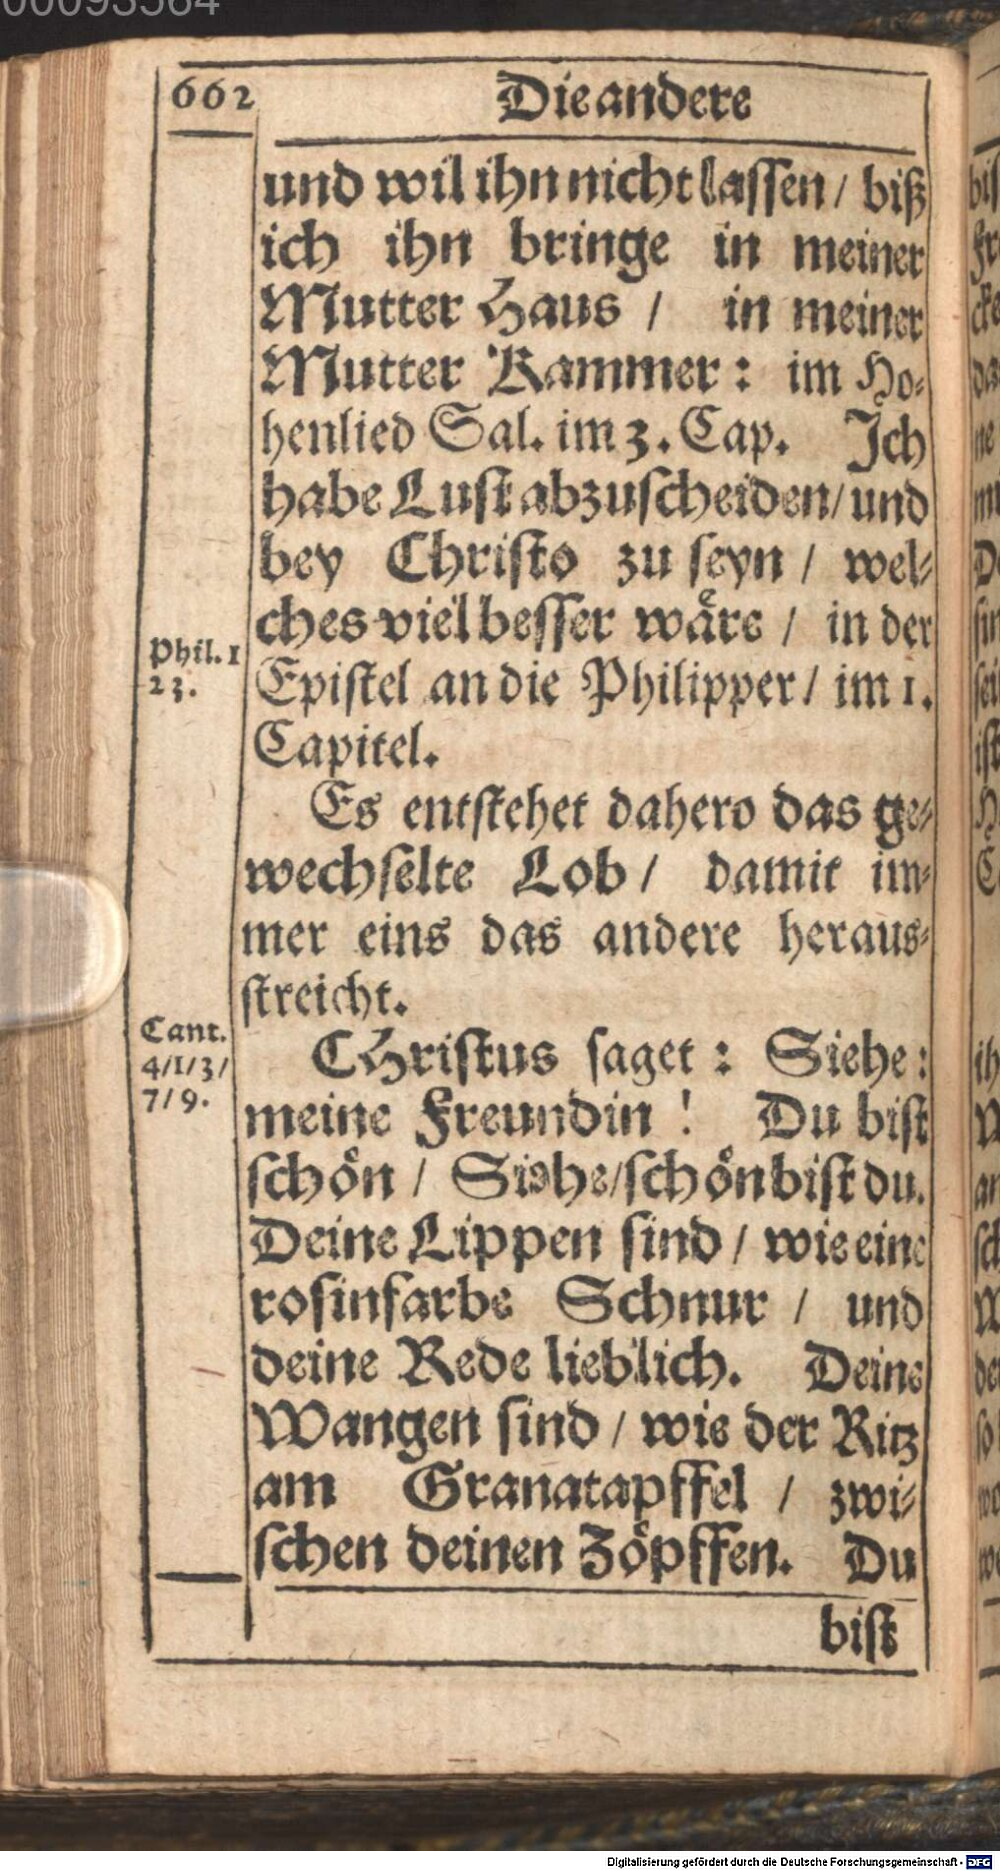 00093564
662
Die andere
und wil ihn nicht lassen / biß
ich ihn bringe in meiner
Mutter Haus / in meiner
Mutter Kammer: im Ho-
henlied Sal. im 3. Cap. Jch
habe Lust abzuscheiden / und
bey Christo zu seyn / wel-
ches viel besser wäre / in der
Phil. 1
23.
Epistel an die Philipper / im 1.
Capitel.
Es entstehet dahero das ge-
wechselte Lob / damit im-
mer eins das andere heraus-
streicht.
Cant.
4/1/3/
7/9.
CHristus saget: Siehe:
meine Freundin! Du bist
schön / Siehe / schön bist du.
Deine Lippen sind / wie eine
rosinfarbe Schnur / und
deine Rede lieblich. Deine
Wangen sind / wie der Ritz
am Granatapffel / zwi-
schen deinen Zöpffen. Du
bist
Digitalisierung gefördert durch die Deutsche Forschungsgemeinschaft - DFG